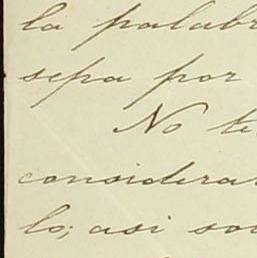 la palabr
sepa por
No te
considera
lo; asi so